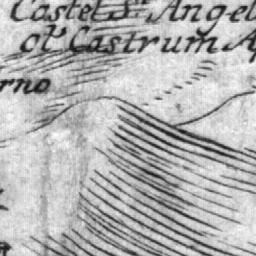 Castel S.t Angel
ol.t Castrum A
rno